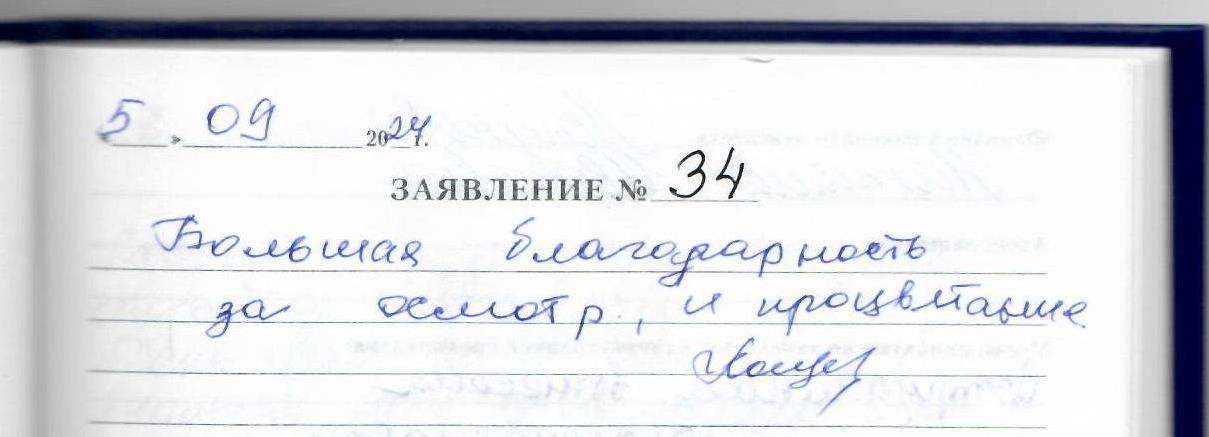 5 » 09 2024 г.
ЗАЯВЛЕНИЕ № 34
Большая благодарность
за осмотр, и процветание